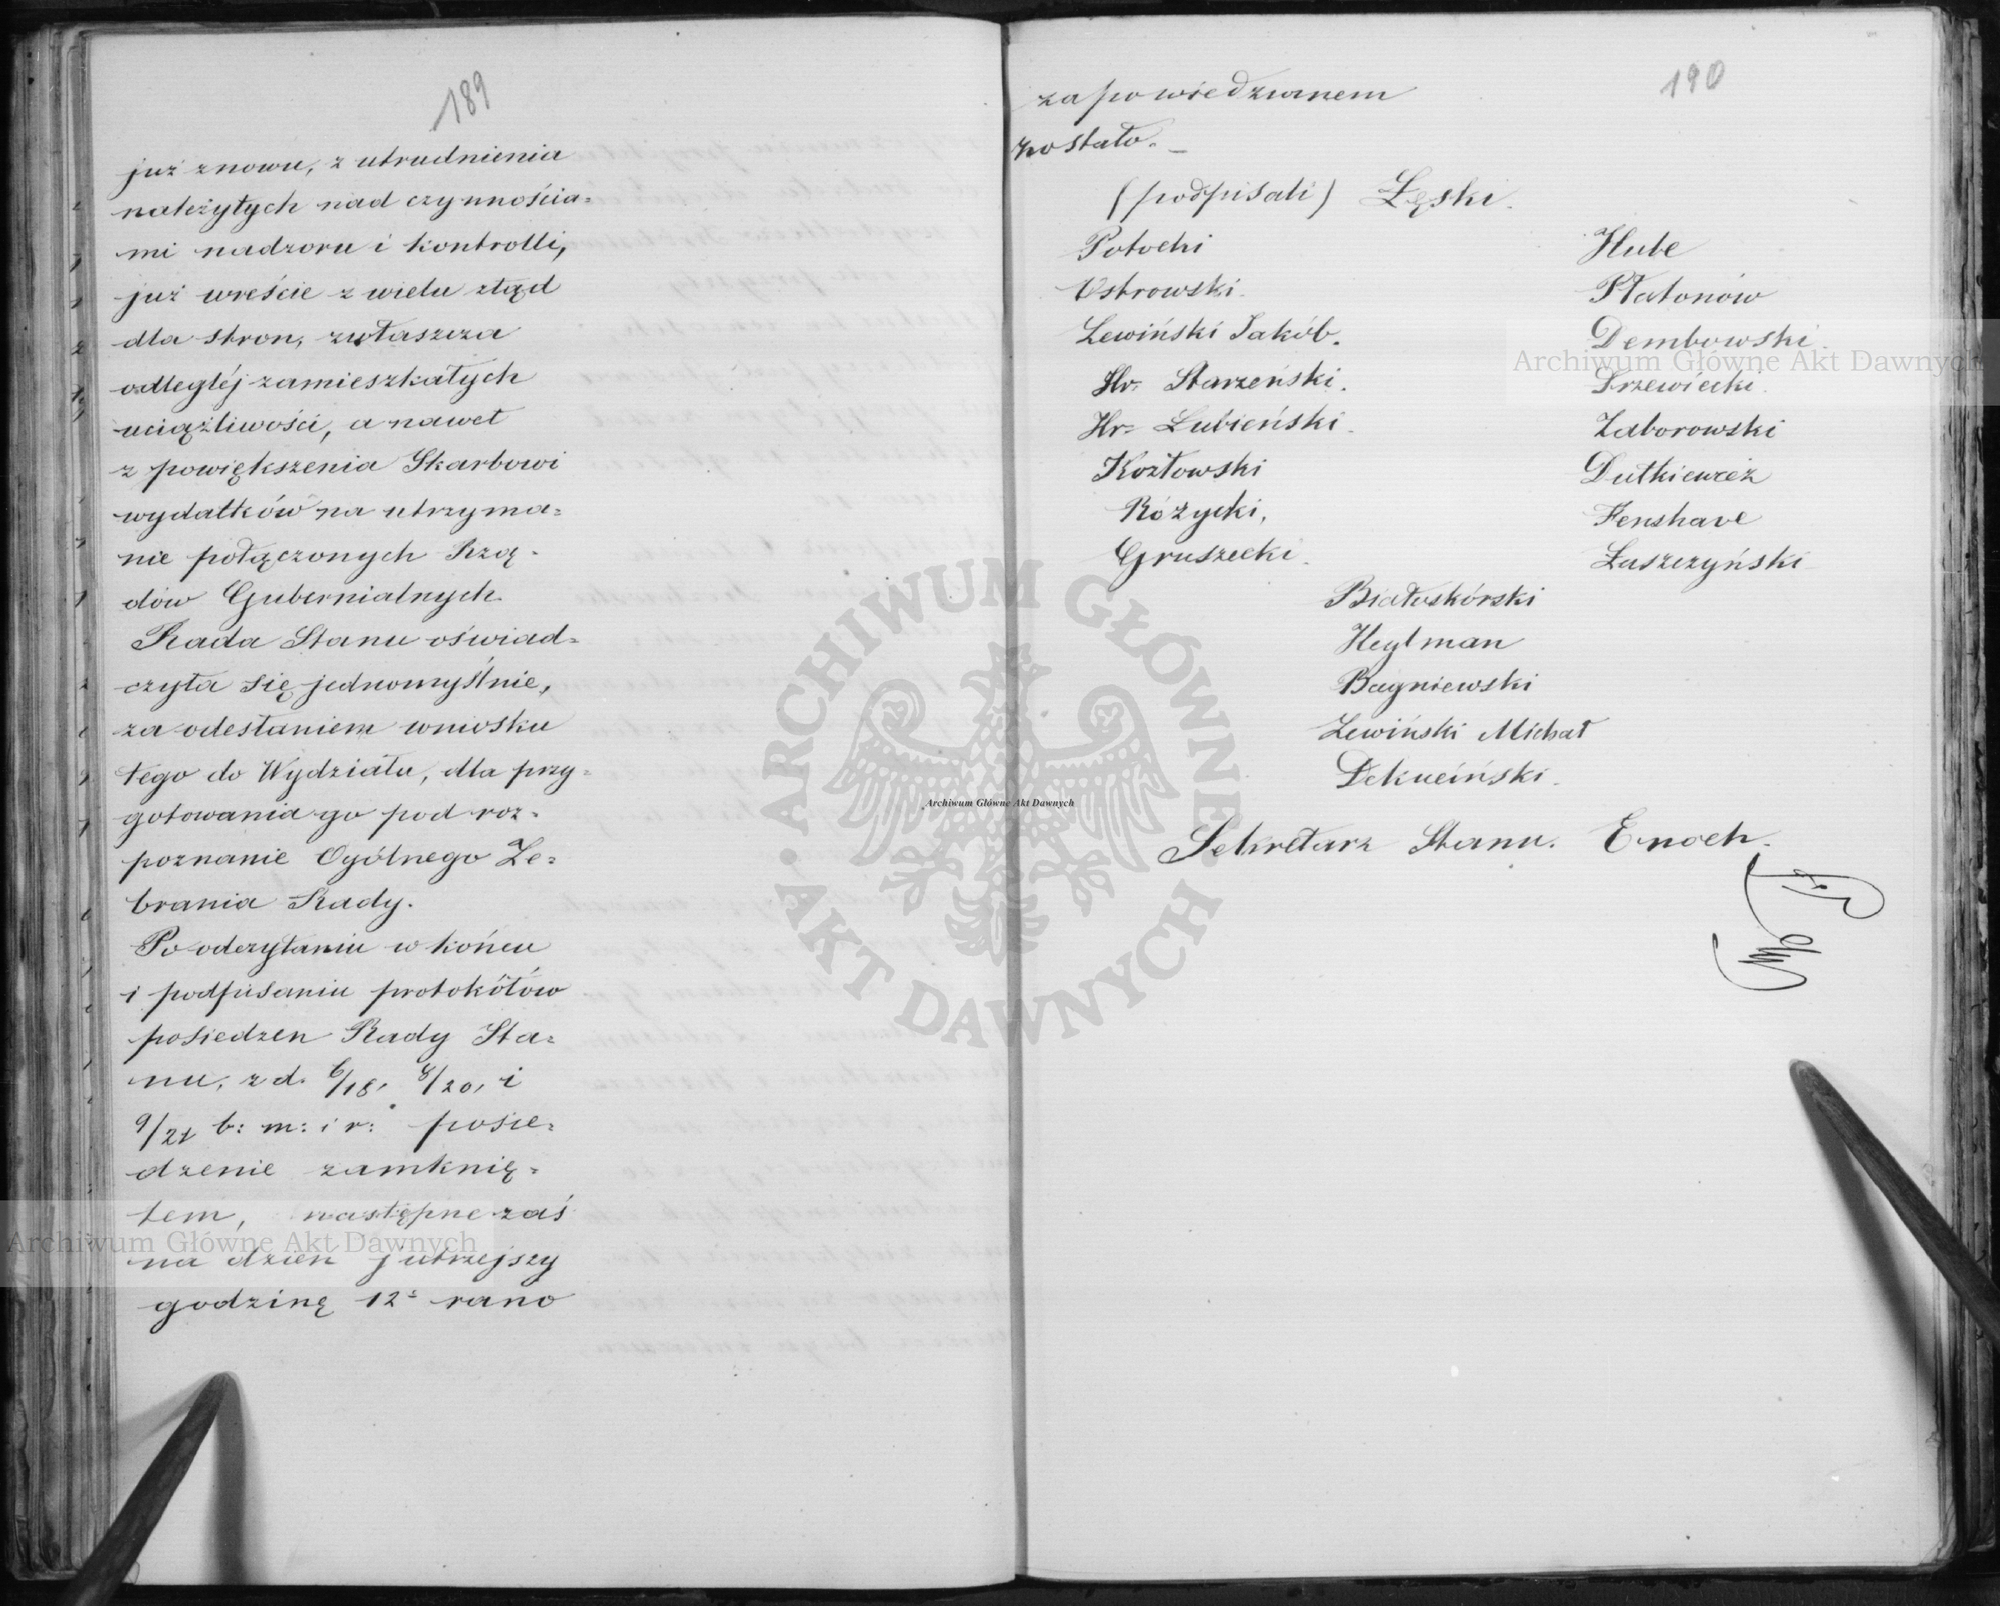 189
już znowu, z utrudnienia
należytych nad czynnościa=
mi nadzoru i kontrolli,
już wreście z wielu ztąd
dla stron, zwłaszcza
odległéj zamieszkałych
uciążliwości, a nawet
z powiększenia Skarbowi
wydatków na utrzyma=
nie połączonych Rzą=
dów Gubernialnych.
Rada Stanu oświad=
czyła się jednomyślnie,
za odesłaniem wniosku
tego do Wydziału, dla przy=
gotowania go pod roz=
poznanie Ogólnego Ze=
brania Rady.
Po odczytaniu w końcu
i podpisaniu protokółów
posiedzen Rady Sta=
nu, z d. 6/18, 8/20, i
9/21 b: m: i r: posie=
dzenie zamknię=
tem, następne zaś
na dzień jutrzejszy
godzinę 12s rano
190
zapowiedzianem
zostało. _
(podpisali) Łęski.
Potocki Hube
Ostrowski. Płatonow
Lewiński Jakób. Dembowski.
Hr. Starzeński. Drzewiecki.
Hr= Łubieński. Zaborowski
Kozłowski Dutkiewicz
Różycki, Fenshave
Gruszecki. Łaszczyński
Białoskórski
Heylman
Bagniewski
Lewiński Michał
Dekuciński.
Sekretarz Stanu. Enoch.
Archiwum Główne Akt Dawnych
Archiwum Główne Akt Dawnych
Archiwum Główne Akt Dawnych
ARCHIWUM GŁÓWNE AKT DAWNYCH